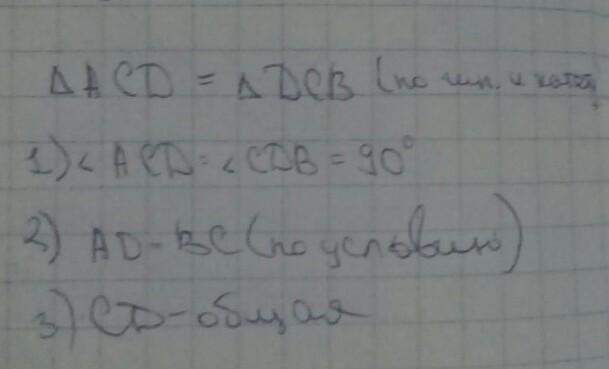 Δ ACD = Δ DCB (по гип. и катету
1) < ACD = < CDB = 90°
2) AD - BC (по условию)
3) CD - общая